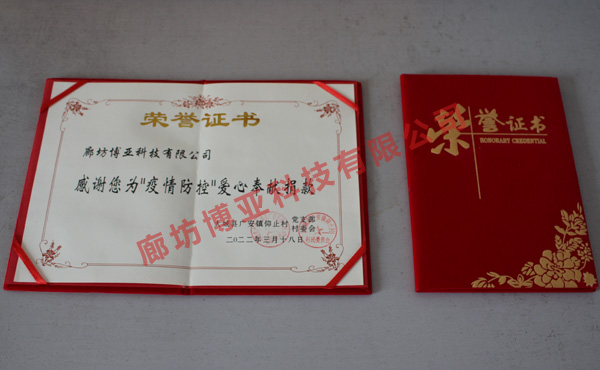 荣誉证书
廊坊博亚科技有限公司
感谢您为"疫情防控"爱心奉献捐款
大城县广安镇仰止村 党支部
村委会
二〇二二年三月十八日
荣誉证书
HONORARY CREDENTIAL
廊坊博亚科技有限公司